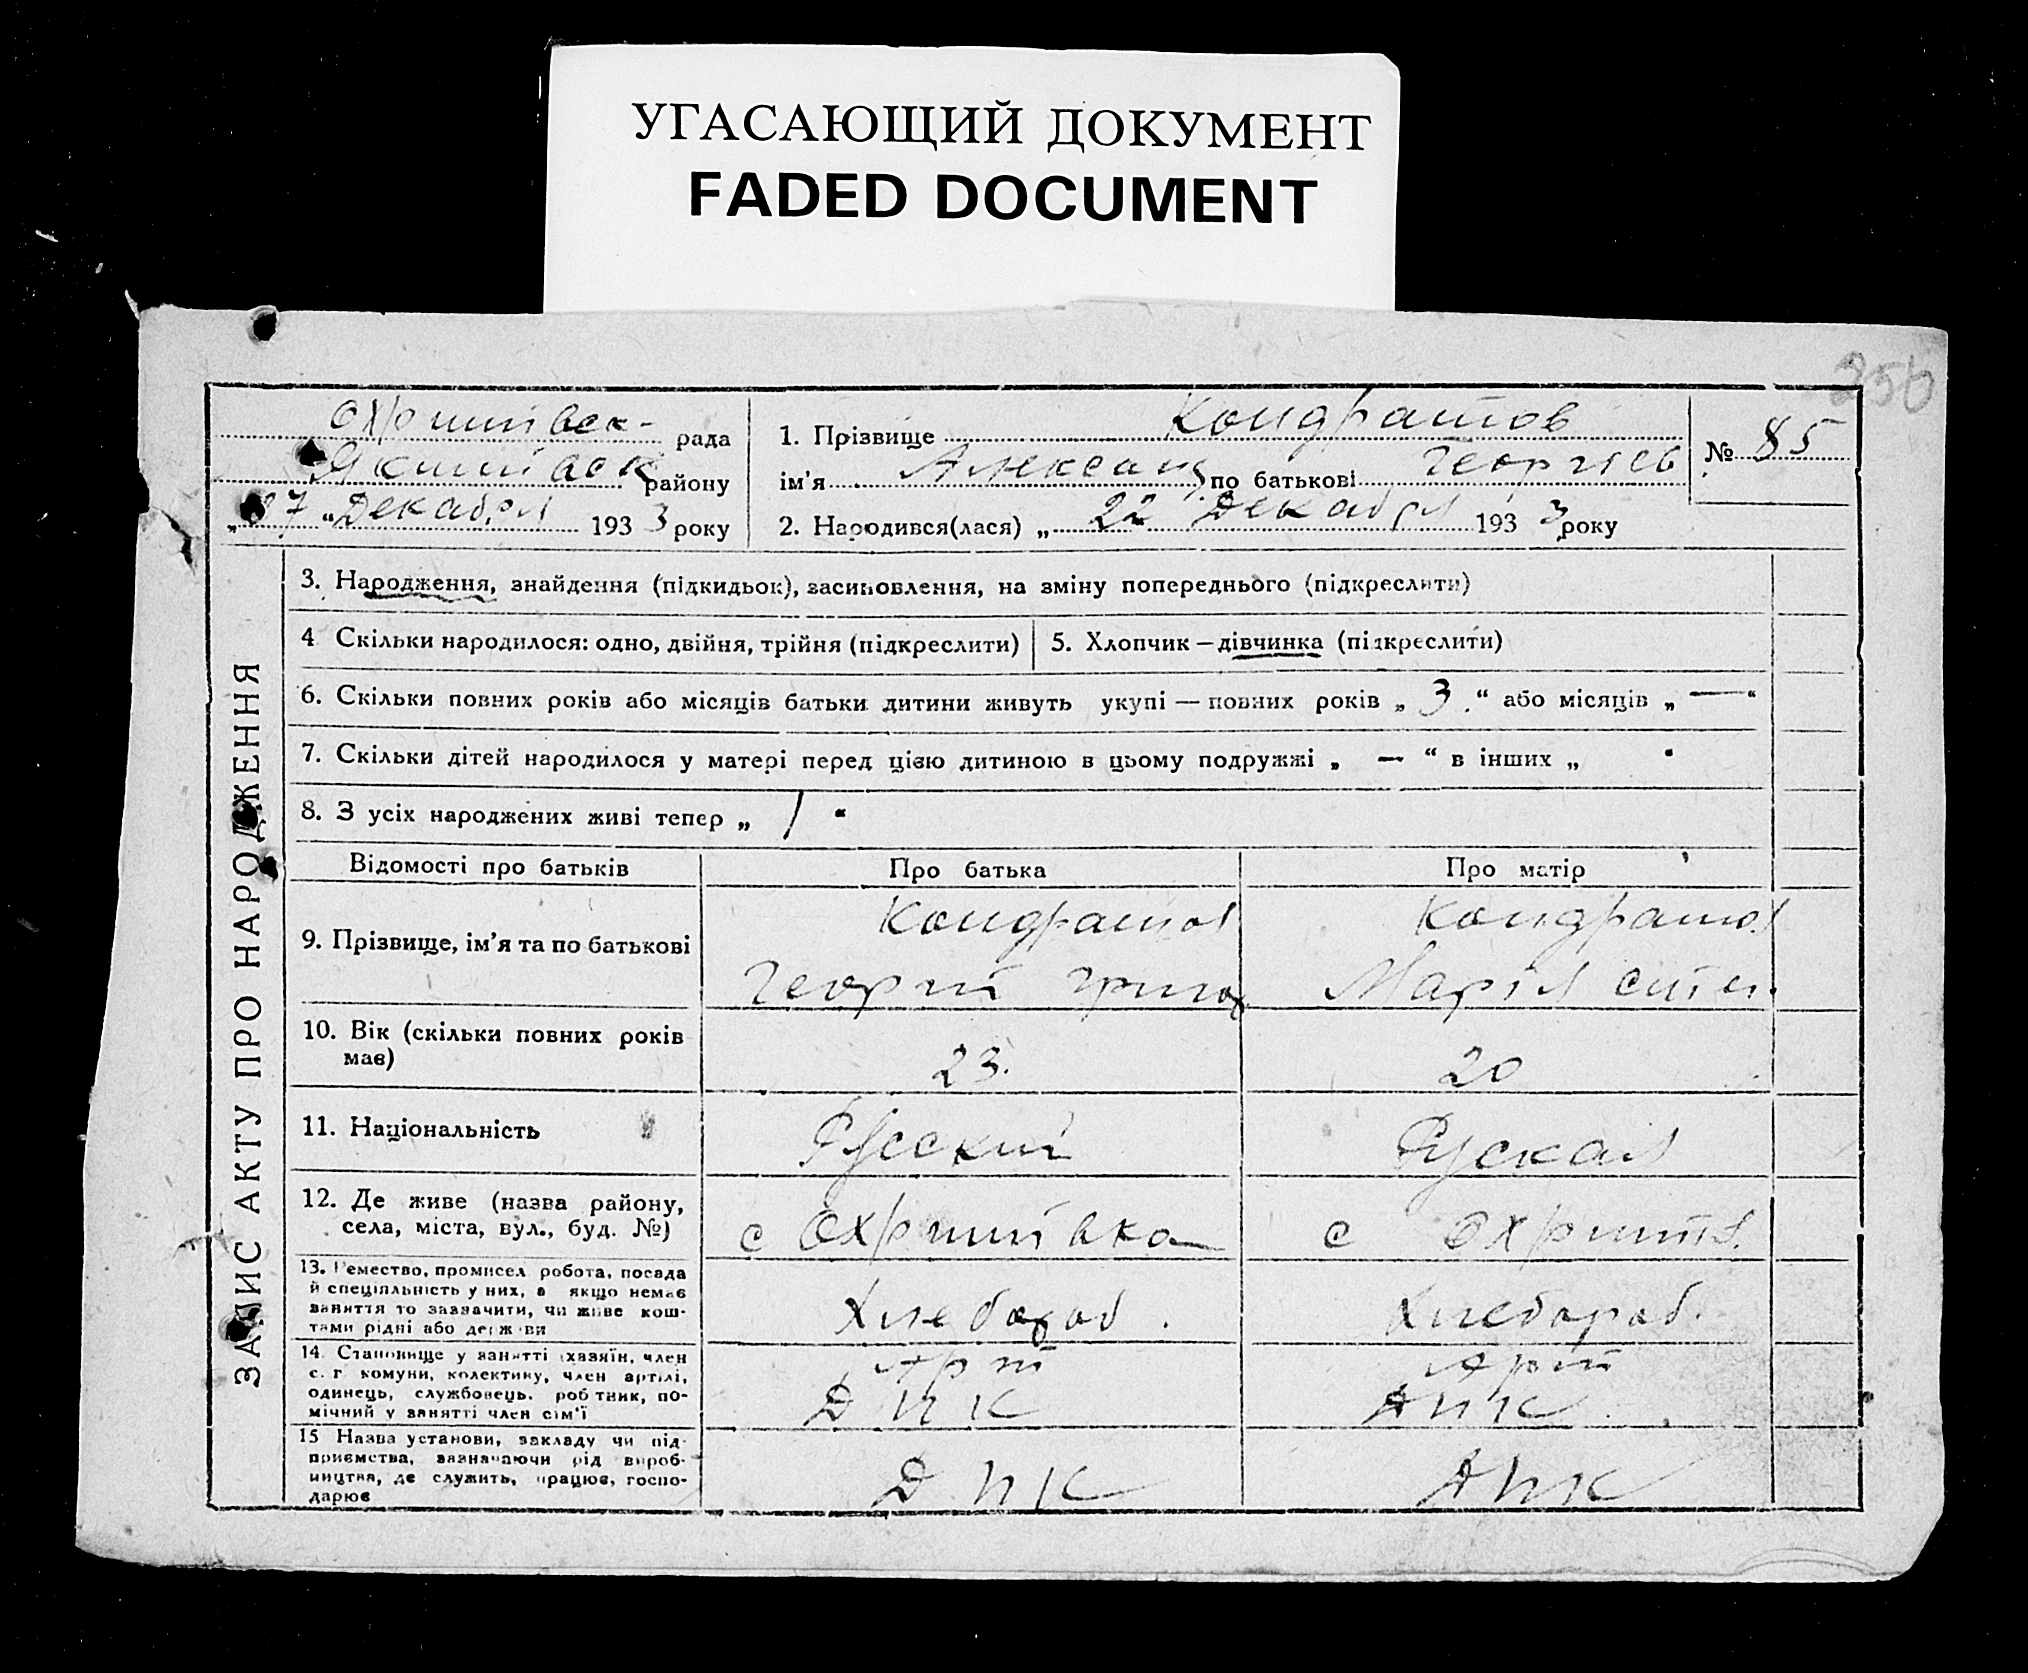 УГАСАЮЩИЙ ДОКУМЕНТ
FADED DOCUMENT
250
Охримівск- рада
Якимівск району
„27 “ Декабря 1933 року
1. Прізвище Кондратов
ім'я Александ по батькові Георгіев
2. Народився(лася) „ 22 Декабря 1933 року
№ 85
ЗАПИС АКТУ ПРО НАРОДЖЕННЯ
3. Народження, знайдення (підкидьок), засиновлення, на зміну попереднього (підкреслити)
4 Скільки народилося: одно, двійня, трійня (підкреслити)
5. Хлопчик — дівчинка (підкреслити)
6. Скільки повних років або місяців батьки дитини живуть укупі — повних років „ 3. “ або місяців „ — “
7. Скільки дітей народилося у матері перед цією дитиною в цьому подружжі „ — “ в інших „ “
8. З усіх народжених живі тепер „ 1 “
Відомості про батьків Про батька Про матір
9. Прізвище, ім'я та по батькові
Кондратов
Георгій Григор
Кондратов
Марія Степ.
10. Вік (скільки повних років
має)
23.
20
11. Національність
Русский
Руская
12. Де живе (назва району,
села, міста, вул., буд. №)
с Охримівка
с Охримів.
13. Ремество, промисел робота, посада
й спеціяльність у них, а якщо немає
заняття то зазначити, чи живе кош-
тами рідні або держави
Хлебороб.
Хлебороб.
14. Становище у занятті (хазяїн, член
с. г комуни, колективу, член артілі,
одинець, службовець, робітник, по-
мічний у занятті член сім'ї
Арт
ДПК
Арт
ДПК
15 Назва установи, закладу чи під-
приємства, зазначаючи рід вироб-
ництва, де служить, працює, госпо-
дарює
ДПК
ДПК